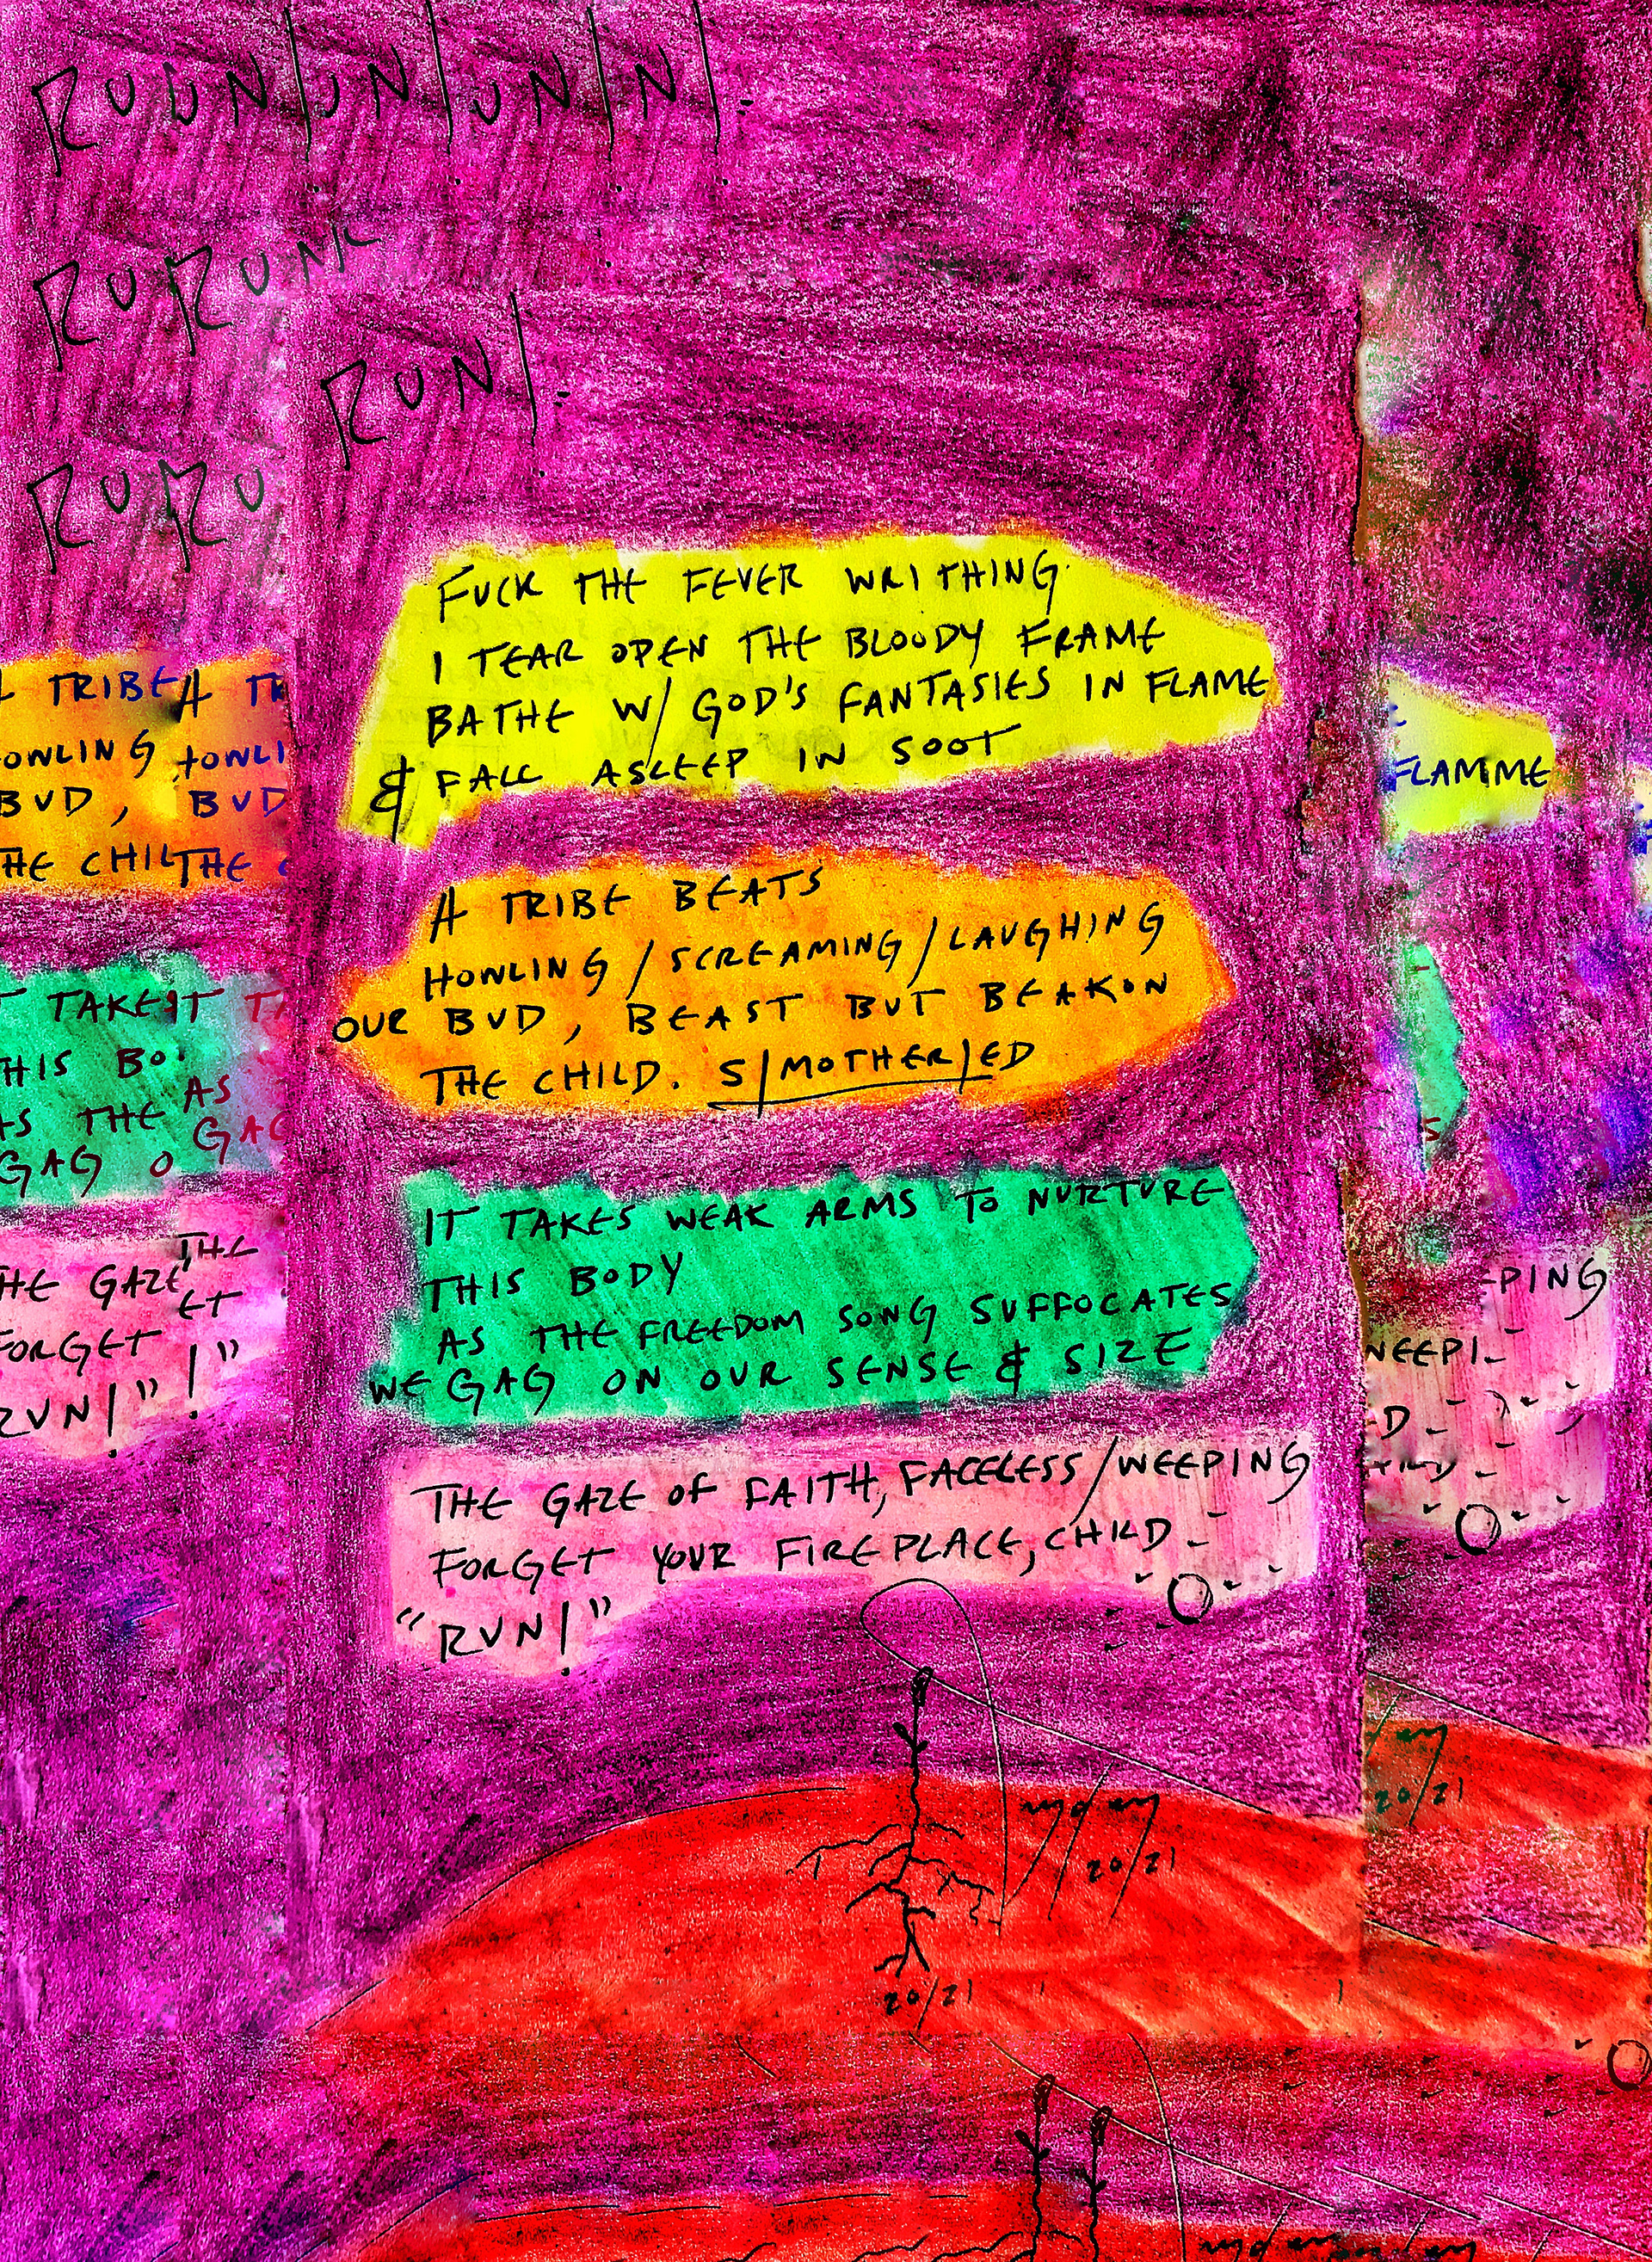 RUUN/UN/UN/N/.
RURUN
RUN/.
RURU
FUCK THE FEVER WRITHING
I TEAR OPEN THE BLOODY FRAME
BATHE W/ GOD'S FANTASIES IN FLAME
& FALL ASLEEP IN SOOT
FLAMME
A TRIBE A TR
OWLING HOWLI
BUD, BUD
HE CHIL THE C
A TRIBE BEATS
HOWLING/SCREAMING/LAUGHING
OUR BUD, BEAST BUT BEAKON
THE CHILD. S/MOTHER/ED
T TAKES IT TA
HIS BO
AS THE AS
GAG O GAG
IT TAKES WEAK ARMS TO NURTURE
THIS BODY
AS THE FREEDOM SONG SUFFOCATES
WE GAG ON OUR SENSE & SIZE
S
HE GAZE THE
FORGET ET
RUN!"!"
THE GAZE OF FAITH, FACELESS/WEEPING
FORGET YOUR FIREPLACE, CHILD
"RUN!"
PING
WEEPI
D
20/21
20/21
20/21